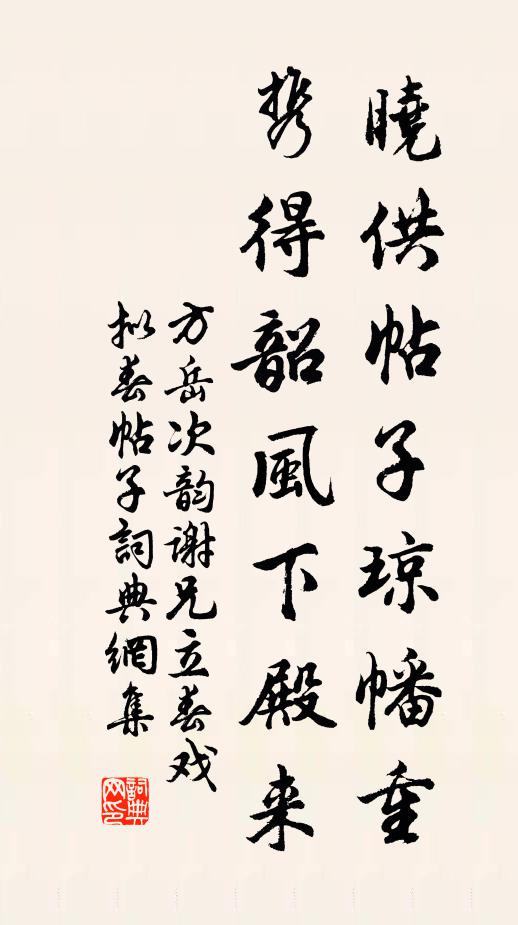 曉供帖子琼幡重
携得韶風下殿来
方岳次韵谢兄立春戏
拟春帖子詞典網集
詞典网印